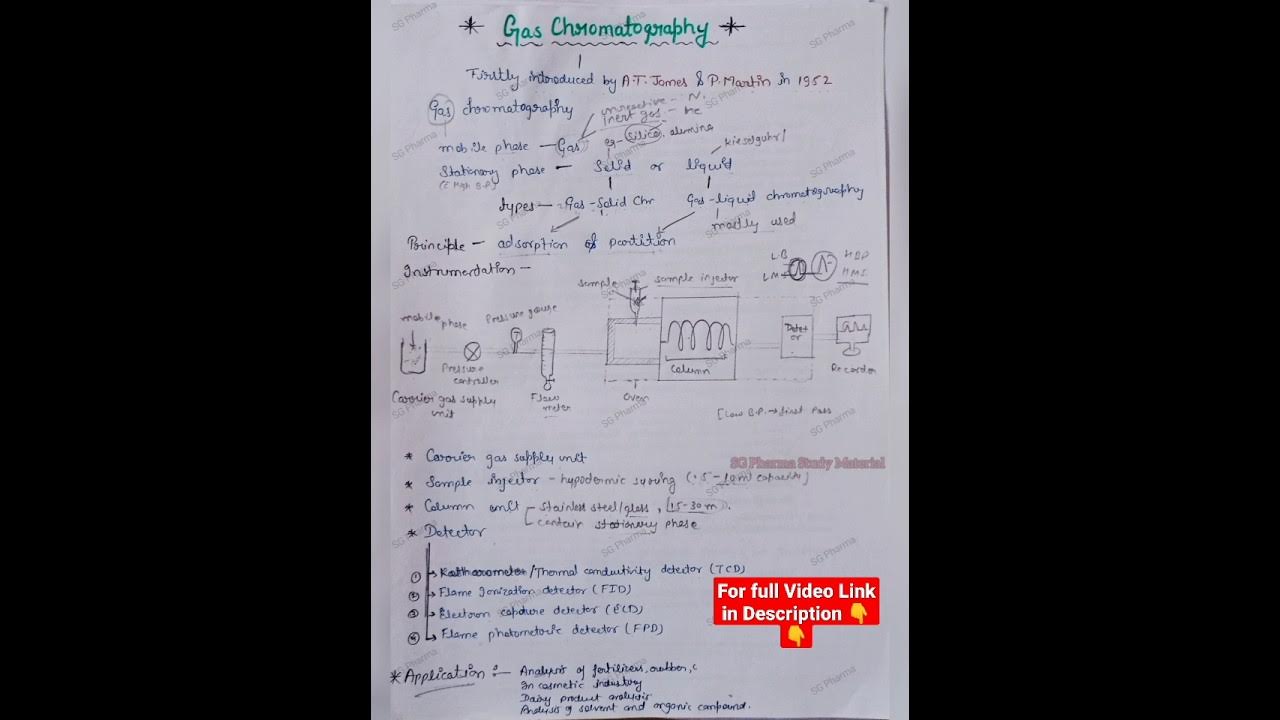 * Gas Chromatography *
Firstly introduced by A.T. James & P. Martin in 1952
Gas chromatography
unreactive - N.
Inert gas - He
mobile phase - Gas eg- Silica, alumina
kieselguhr/
Stationary phase - Solid or liquid
(c High B.P)
types - Gas-Solid Chr Gas-liquid chromatography
mostly used
Principle - adsorption & partition
Instrumentation -
L.B HBP
LM HMS
sample sample injector
mobile phase Pressure gauge
Detector
Pressure controller
column
Recorder
Carrier gas supply unit
Flow meter
Oven
[Low B.P. → first Pass
SG Pharma Study Material
* Carrier gas supply unit
* Sample injector - hypodermic syring (.5-10ml capacity)
* Column unit - stainless steel/glass, 15-30m.
- contain stationary phase
* Detector
① → Katharometer/Thermal conductivity detector (TCD)
② → Flame Ionization detector (FID)
③ → Electron capture detector (ECD)
④ → Flame photometric detector (FPD)
For full Video Link
in Description 👇
👇
* Application :- Analysis of fertilizers, rubber, c
In cosmetic industry
Dairy product analysis
Analysis of solvent and organic compound.
SG Pharma